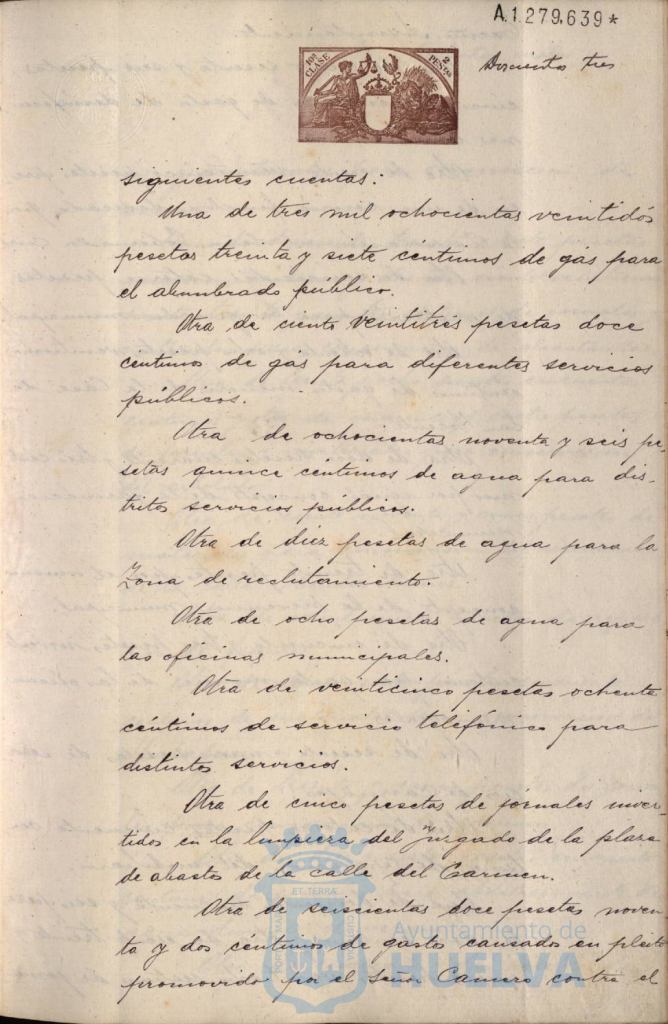 A.1.279,639*
10ª CLASE
2 PESETAS
Doscientos tres
siguientes cuentas:
Una de tres mil ochocientas veintidós
pesetas treinta y siete céntimos de gás para
el alumbrado público.
Otra de ciento veintitrés pesetas doce
céntimos de gás para diferentes servicios
públicos.
Otra de ochocientas noventa y seis pe-
setas quince céntimos de agua para dis-
tritos servicios públicos.
Otra de diez pesetas de agua para la
Zona de reclutamiento.
Otra de ocho pesetas de agua para
las oficinas municipales.
Otra de veinticinco pesetas ochenta
céntimos de servicio telefónico para
distintos servicios.
Otra de cinco pesetas de jornales inver-
tidos en la limpieza del Juzgado de la plaza
de abastos de la calle del Carmen.
Otra de seiscientas doce pesetas noven-
ta y dos céntimos de gastos causados en pleito
promovido por el Señor Camero contra el
ET TERRÆ
Ayuntamiento de
HUELVA